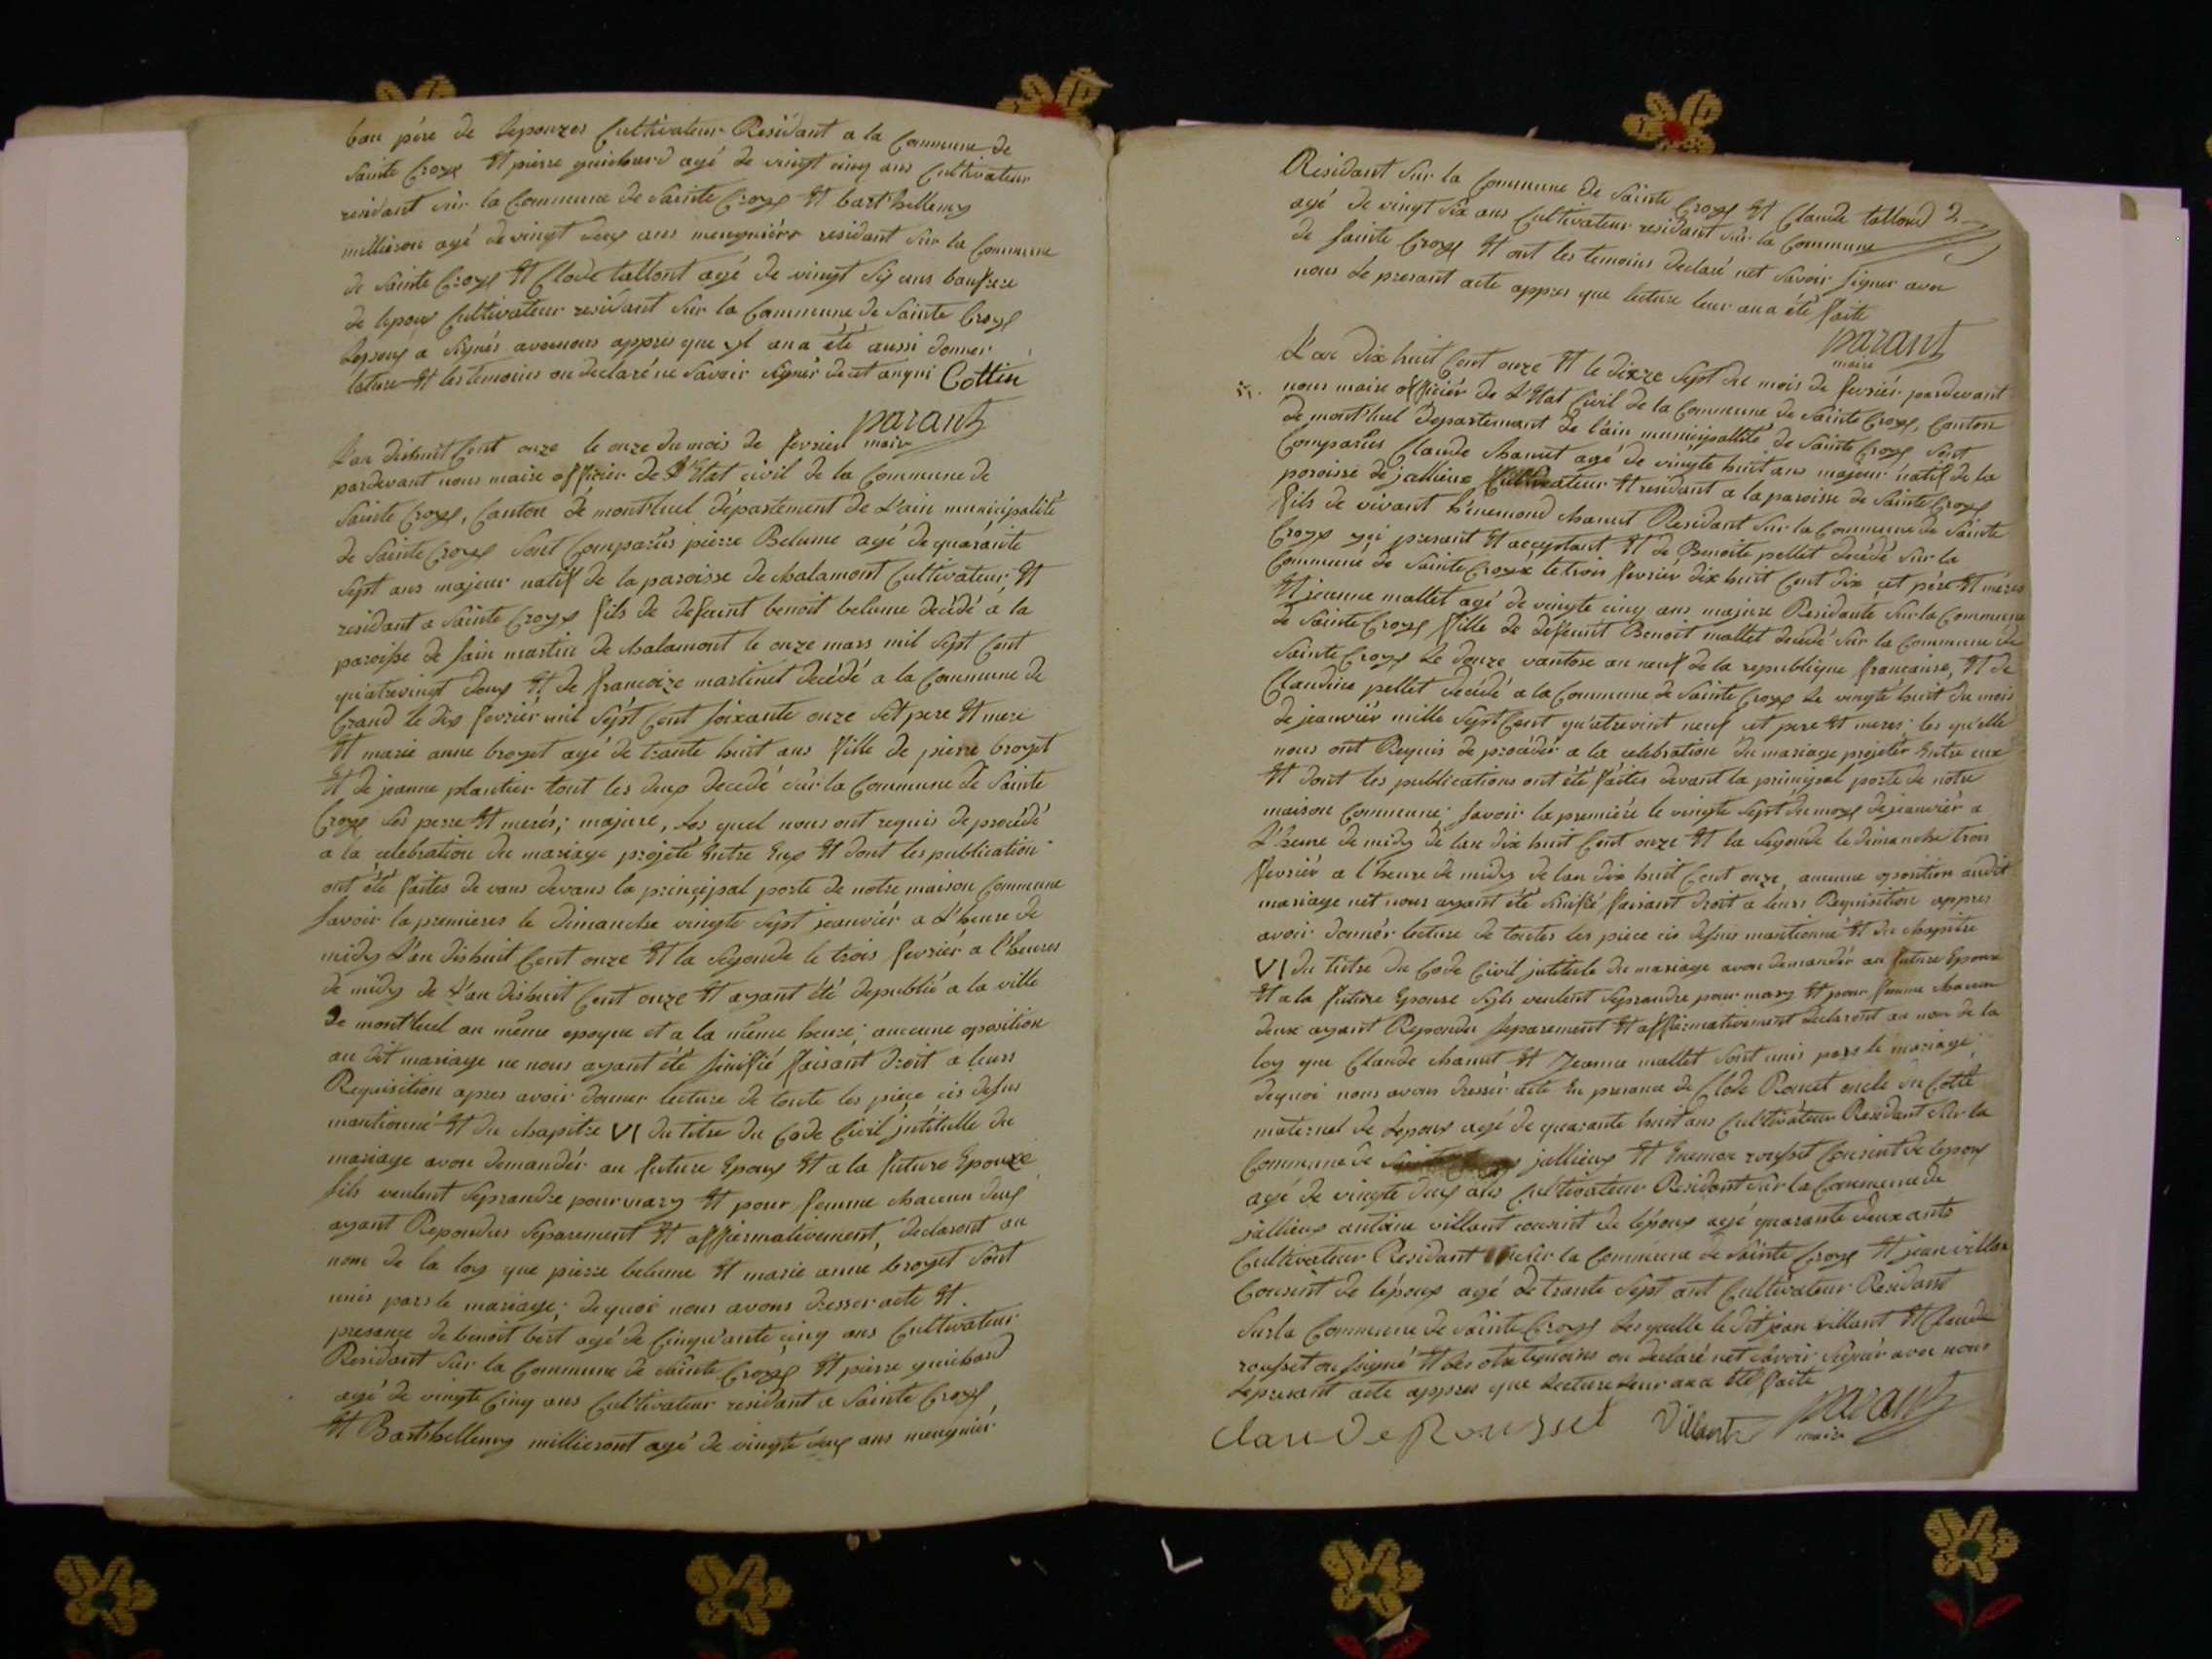 bau pére de lepouzes Cultivateur Residant a la Commune de
Sainte Croys Et pierre guichard agé de vingt cinq ans Cultivateur
residant sur la Commune de Sainte Croys Et barthellemy
millieron agé de vingt deus ans meugniérs residant Sur la Commune
de Sainte Croys Et Clode tallont agé de vingt Six ans baufrere
de lepous Cultivateur residant Sur la Commune de Sainte Croys
a Signés avecnous appres que yl an a été aussi donner
lature Et les temoins on declaré ne Savoir Signér de cet anqui Cottin
parant
maire
L'an dishuit Cent onze le onze du mois de fevrier
pardevant nous maire officier de L'Etat civil de la Commune de
Sainte Croys, Canton de montluel département de L'ain municipalité
de Sainte Croys Sont Comparus pierre Belume agé de quarante
Sept ans majeur natif de la paroisse de chalamont Cultivateur Et
residant a Sainte Croys fils de defunt benoit belume decédé a la
paroisse de Sain martin de chalamont le onze mars mil Sept Cent
quatrevingt deus Et de francoize martinet decédé a la Commune de
Crand le dix fevriér mil Sept Cent Soixante onze Set pere Et mere
Et marie anne broyet agé de trante huit ans fille de pierre broyet
Et de jeanne plantier tout les deus decedé sur la Commune de Sainte
Croys Ses perre Et merés; majure, Les quel nous ont requis de procédé
a la celebration du mariage projété Entre Eus Et dont les publication
ont été faites de vans devans la principal porte de notre maison Commune
Savoir la premieres le dimanche vingte Sept jeanviér a L'heure de
midy L'an dishuit Cent onze Et la Segonde le trois fevriér a l'heures
de midy de L'an dishuit Cent onze Et ayant été depublié a la ville
de montluel au même epoque et a la même heure; aucune oposition
au dit mariage ne nous ayant été Sinifié faisant droit a leurs
Requisition apres avoir donner lecture de toute les piéce cis desus
mantionné Et du chapitre VI du titre du Code Civil intitulle du
mariage avon demandér au future Epous Et a la future Epouze
Sils veulent Seprandre pour mary Et pour femme chacun deus
ayant Repondus Separement Et affirmativement, declaront au
nom de la loy que pierre belume Et marie anne broyet Sont
unis pars le mariage; de quoi nous avons dresser acte Et
presance de benoit bért agé de Cinquante cinq ans Cultivateur
Residant Sur la Commune de Sainte Croys Et pierre guichard
agé de vingte Cinq ans Cultivateur residant a Sainte Croys
Et Barthellemy millieront agé de vingte deus ans meugniér
Residant Sur la Commune de Sainte Croys Et Claude tallond 2
agé de vingt Six ans Cultivateur residant Sur la Commune
de Sainte Croys Et ont les temoins declaré net Savoir Signer avec
nous Le presant acte appres que lecture leur an a été faite
parant
maire
L'an dix huit Cent onze Et le dixze Sept du mois de fevriér pardevant
nous maire officiér de L'Etat Civil de la Commune de Sainte Croys, Canton
de montluel Departemant de l'ain municipallité de Sainte Croys Sont
Comparus Claude chanut agé de vingte huit ans majeur natif de la
poroisse de jallieux Cultivateur Et residant a la paroisse de Sainte Croys
fils de vivant hénemond chanut Residant Sur la Commune de Sainte
Croys yçi presant Et acceptant Et de Benoite pellet decédé Sur la
Commune de Sainte Croyx le trois fevriér dix huit Cent dix cet pére Et méres
Et jeanne mallet agé de vingte cinq ans majure Residante Sur la Commune
de Sainte Croys fille de défunt Benoit mallet decedé Sur la Commune de
Sainte Croys Le douze vantose an neuf de la republique francaise, Et de
Claudine pellet decédé a la Commune de Sainte Croys Le vingte huit du mois
de jeanviér mille Sept Cent quatrevint neuf cet pere Et meres; les quelle
nous ont Requis de procédér a la celebration du mariage projetér Entre eux
Et dont les publications ont été faites devant la principal porte de notre
maison Commune; Savoir la premiére le vingte Sept du moys de jeanviér a
L'heure de midy de lan dix huit Cent onze Et la Segonde le dimanche trois
fevriér a l'heure de midy de lan dix huit Cent onze, aucune oposition audit
mariage net nous ayant été Sinifié faisant droit a leurs Requisition appres
avoir donnér lecture de toutes les piéce cis desus mantionné Et du chapitre
VI du titre du Code Civil intitule du mariage avon demandér au future Epoux
Et a la future Epouse Sils veulent Seprandre pour mary Et pour femme chacun
deux ayant Repondu Separement Et affirmativement declaront au nom de la
loy que Claude chanut Et Jeanne mallet Sont unis pars le mariage;
dequoi nous avons dressér acte En presance de Clode Rouset oncle du Cotté
maternel de L'épous agé de quarante huit ans Cultivateur Residant Sur la
Commune de jallieux Et Enemon rouset Cousint de lepous
agé de vingte deus ans Cultivateur Residant Sur la Commune de
jallieux antoine villant cousint de lépous agé quarante deux ants
Cultivateur Residant Sur la Commune de Sainte Croys Et jean villan
Cousint de l'épous agé de trante Sept ant Cultivateur Residant
Sur la Commune de Sainte Croys Les quelle le dit jean villant Et Claude
rousset on Signé Et Les otre temoins on declaré net Savoir Signér avec nous
Le presant acte appres que Lecture Leur an a été faite
Claude Rousset Villant parant
maire